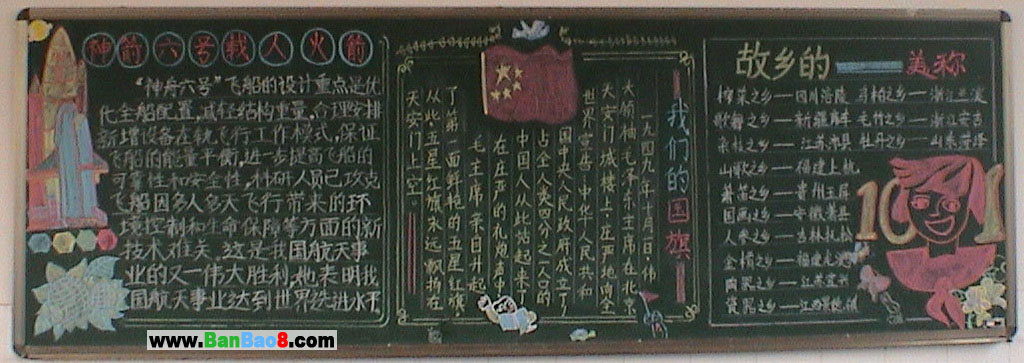 神箭六号载人火箭
“神舟六号”飞船的设计重点是优
化全船配置,减轻结构重量,合理安排
新增设备在轨飞行工作模式,保证
飞船的能量平衡,进一步提高飞船的
可靠性和安全性,科研人员已攻克
飞船因多人多天飞行带来的环
境控制和生命保障等方面的新
技术难关,这是我国航天事
业的又一伟大胜利,她表明我
国航天事业达到世界先进水平
我们的国旗
一九四九年十月一日,伟
大领袖毛泽东主席在北京
天安门城楼上,庄严地向全
世界宣告:中华人民共和
国中央人民政府成立了
占全人类四分之一人口的
中国人从此站起来了
在庄严的礼炮声中
毛主席亲自升起
了第一面鲜艳的五星红旗
从此五星红旗永远飘扬在
天安门上空。
故乡的美称
榨菜之乡——四川涪陵
歌舞之乡——新疆库车 毛竹之乡——浙江安吉
杂技之乡——江苏沛县 牡丹之乡——山东菏泽
山歌之乡——福建上杭
萧笛之乡——贵州玉屏
国画之乡——安徽萧县
人参之乡——吉林扎松
金桔之乡——福建尤溪
陶器之乡——江苏宜兴
瓷器之乡——江西景德镇
101
www.BanBao8.com